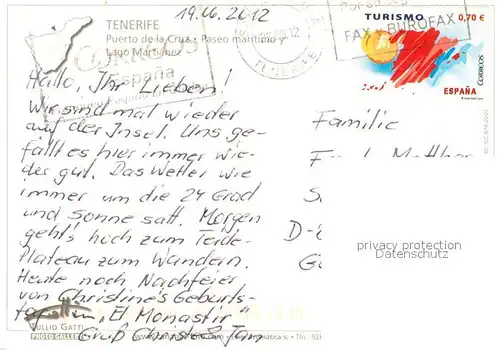 19.06.2012
TENERIFE
Puerto de la Cruz - Paseo marítimo y
Lago Martiánez
CORREOS
España
TENERIFE
FAX y BUROFAX
TURISMO 0,70 €
CORREOS
ESPAÑA
Hallo, Ihr Lieben!
Wir sind mal wieder
auf der Insel. Uns ge-
fällt es hier immer wie-
der gut. Das Wetter wie
immer um die 24 Grad
und Sonne satt. Morgen
geht's hoch zum Teide-
Plateau zum Wandern.
Heute noch Nachfeier
von Christine's Geburts-
tag im „El Monastir"
Gruß Christe &
Familie
D-
privacy protection
Datenschutz
TULLIO GATTI
PHOTO GALLERY